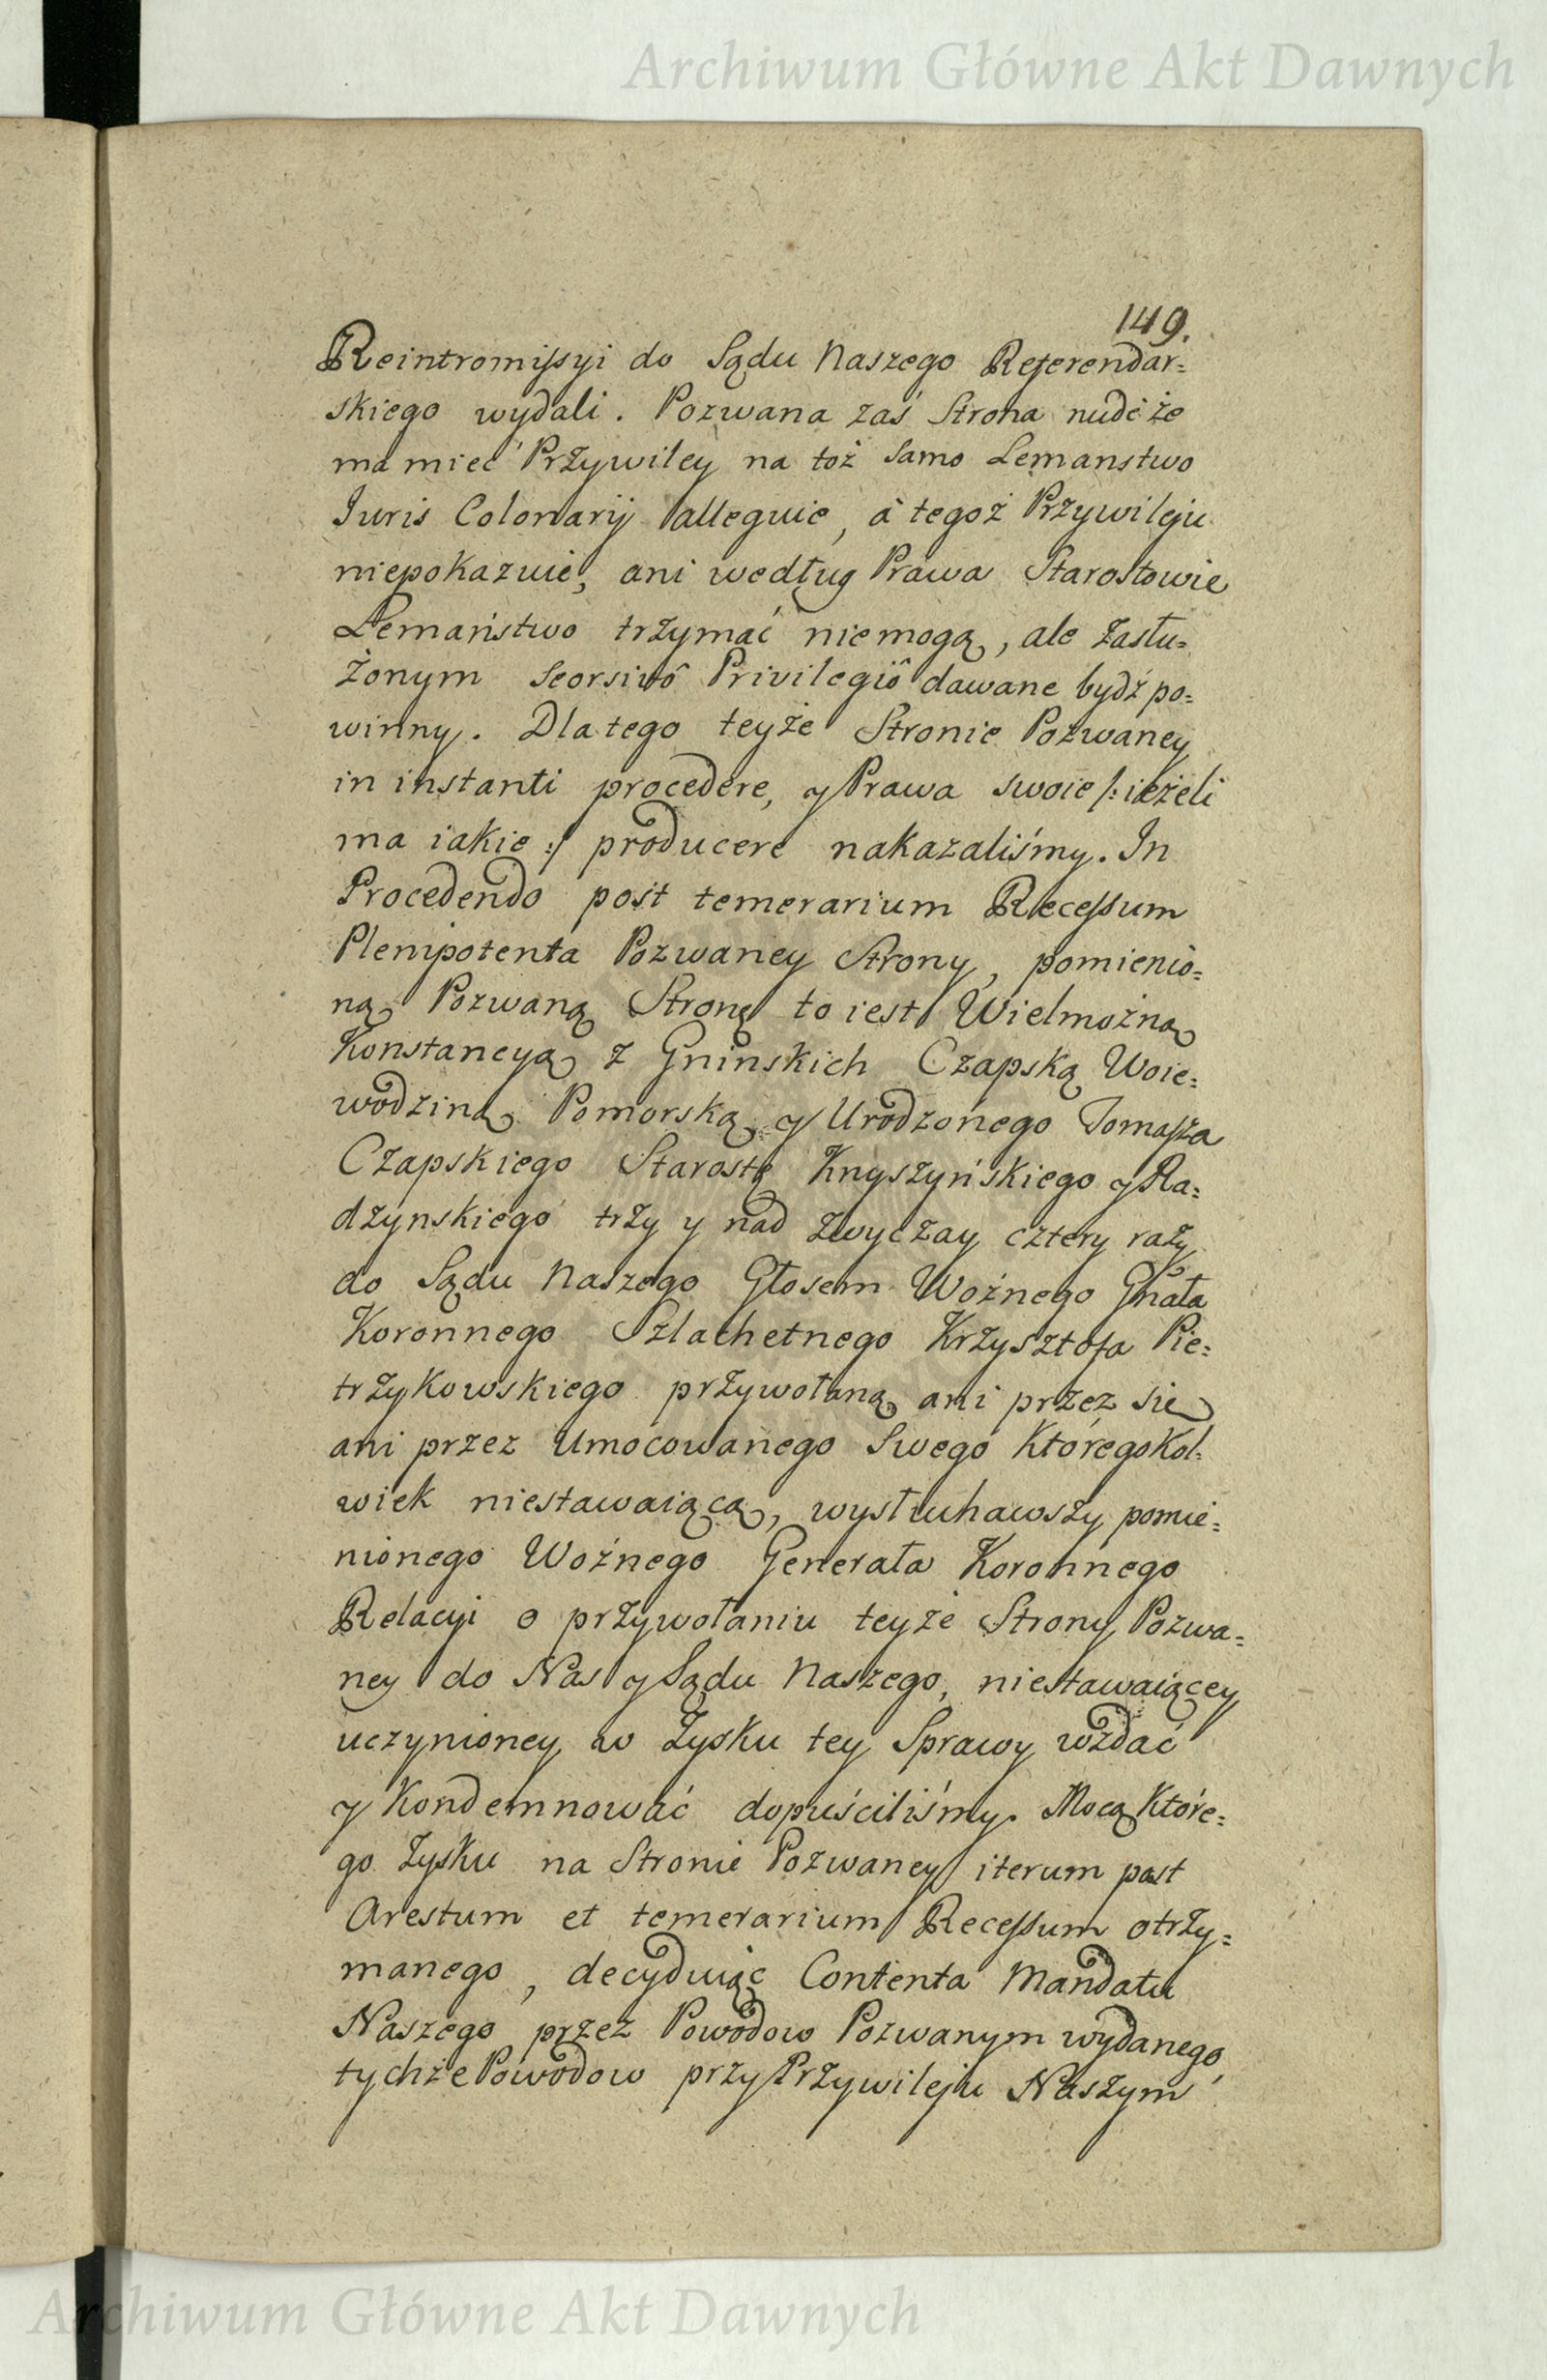 Archiwum Główne Akt Dawnych
149.
Reintromissyi do Sądu Naszego Referendar=
skiego wydali. Pozwana zaś Strona nudè że
ma mieć Przywiley na toż samo Lemanstwo
Iuris Colonarij alleguie, á tegoż Przywileju
niepokazuie, ani według Prawa Starostowie
Lemaństwo trzymać niemogą, ale zasłu=
żonym seorsivô Privilegiô dawane bydź po=
winny. Dla tego teyże Stronie Pozwaney
in instanti procedere, y Prawa swoie /: ieżeli
ma iakie :/ producere nakazaliśmy. In
Procedendo post temerarium Recessum
Plenipotenta Pozwaney Strony, pomienio=
ną Pozwaną Stronę to iest Wielmożną
Konstancyą z Gninskich Czapską Woie=
wodziną Pomorską y Urodzonego Tomasza
Czapskiego Starostę Knyszyńskiego y Ra=
dzynskiego trzy y nad zwyczay cztery razy
do Sądu Naszego Głosem Woźnego Gnała
Koronnego Szlachetnego Krzysztofa Pie=
trzykowskiego przywołaną ani przez się
ani przez Umocowanego Swego Któregokol=
wiek niestawaiącą, wysłuchawszy pomie=
nionego Woźnego Generała Koronnego
Relacyi o przywołaniu teyże Strony Pozwa=
ney do Nas y Sądu Naszego, niestawaiącey
uczynioney w Zysku tey Sprawy wzdać
y Kondemnować dopuściliśmy. Mocą Które=
go Zysku na Stronie Pozwaney iterum post
Arestum et temerarium Recessum otrzy=
manego, decyduiąc Contenta Mandatu
Naszego przez Powodow Pozwanym wydanego,
tychże Powodow przy Przywileju Naszym
Archiwum Główne Akt Dawnych